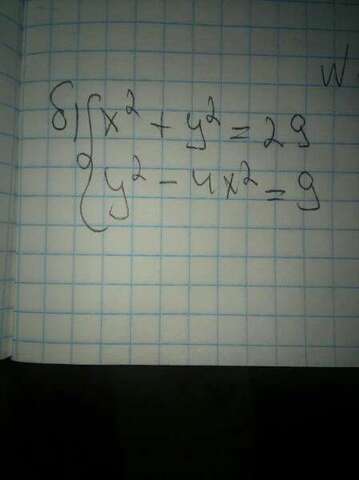 W
б) { x² + y² = 29
y² - 4x² = 9